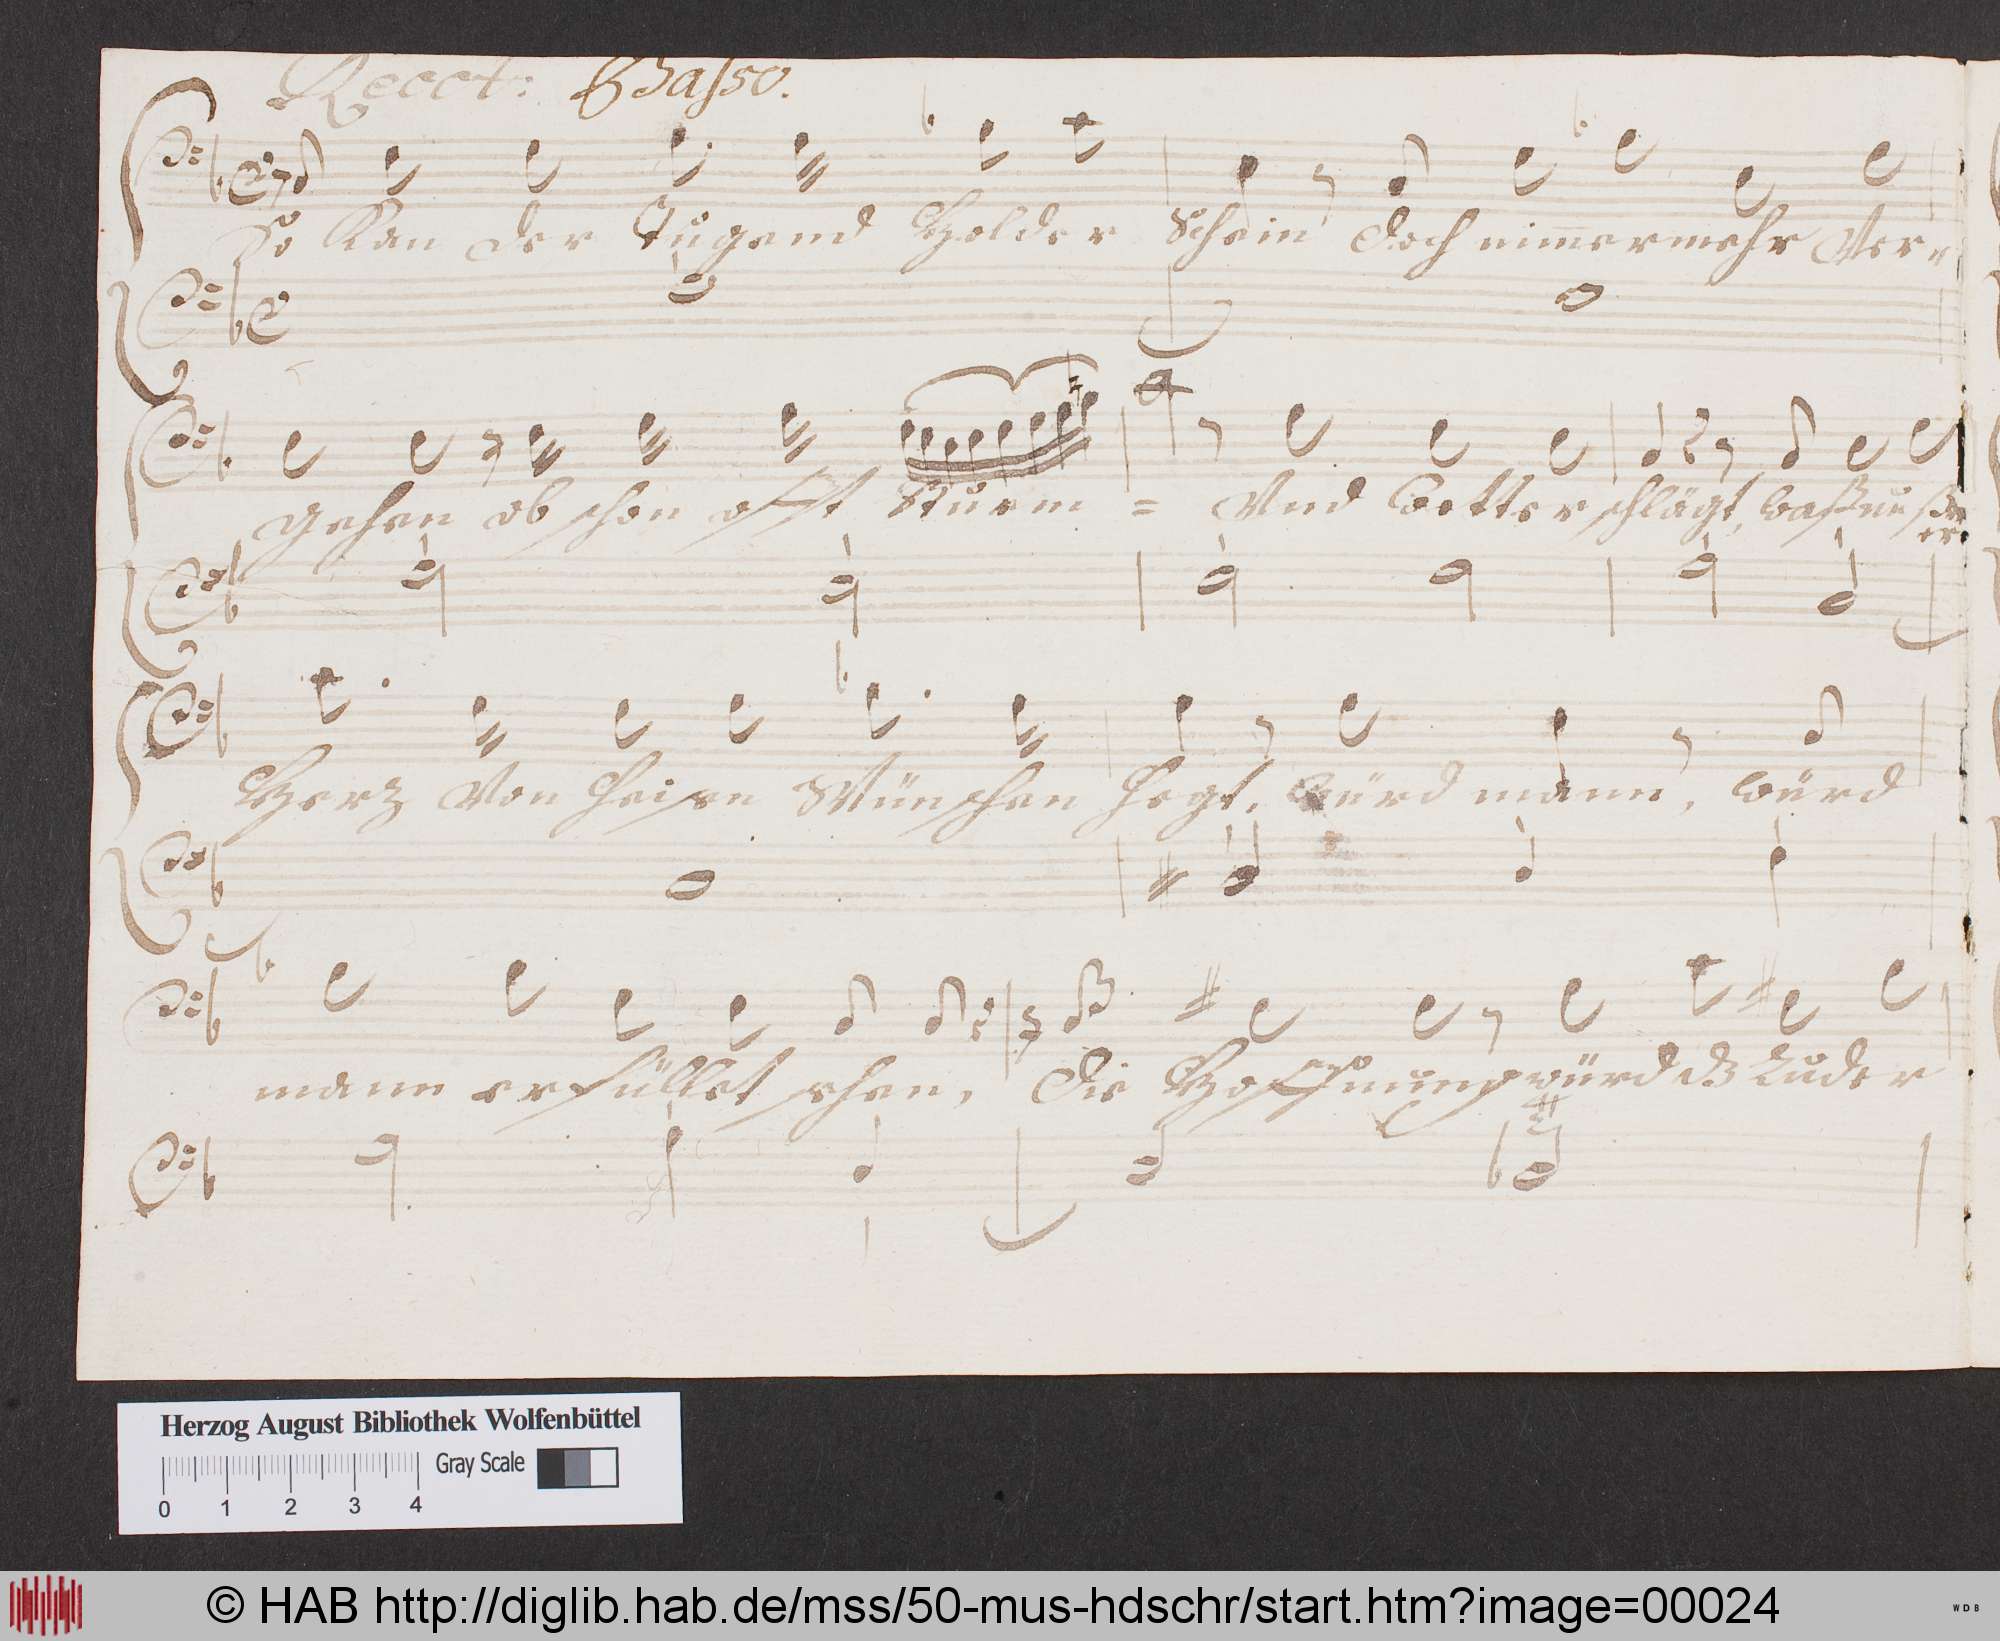 Recct: Basso.
So Kan der Tugend Holder Schein doch nim̄ermehr Ver=
gehen ob schon offt Sturm = Und Wetter schlägt, waß unßer
Hertz Von heisen Wünschen hegt, würd mann, würd
mann erfüllet sehen, die Hoffnung würd
Herzog August Bibliothek Wolfenbüttel
Gray Scale
0 1 2 3 4
© HAB http://diglib.hab.de/mss/50-mus-hdschr/start.htm?image=00024
WDB